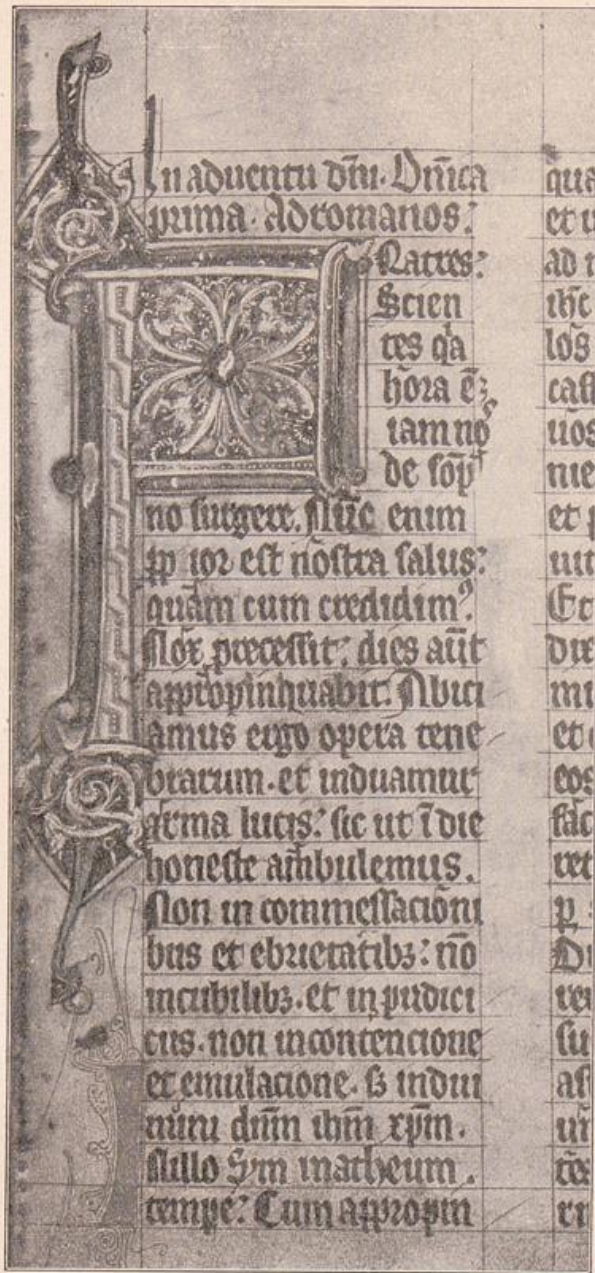 In aduentu dñi. Dñica
prima. Ad romanos.
Fratres:
Scien
tes q̃a
hora ē;
iam nos
de sōp
no surgere. Nũc enim
p̲p ior est nostra salus:
quam cum credidim⁹.
Nox precessit: dies aũt
appropinquabit. Abici
amus ergo opera tene
brarum. et induamur
arma lucis: sic ut ĩ die
honeste ambulemus.
Non in commessacioni
bus et ebrietatibꝫ: nō
incubilibꝫ. et inpudici
ciis. non incontencione
et emulacione. sꝫ indui
mini dñm ihm xp̄m.
Illo
matheum.
Cum appropin
qua
et
ad
ihc
los
cast
uos
nie
et
uit
Et
die
mi
et
eos
fac
ret
p
Di